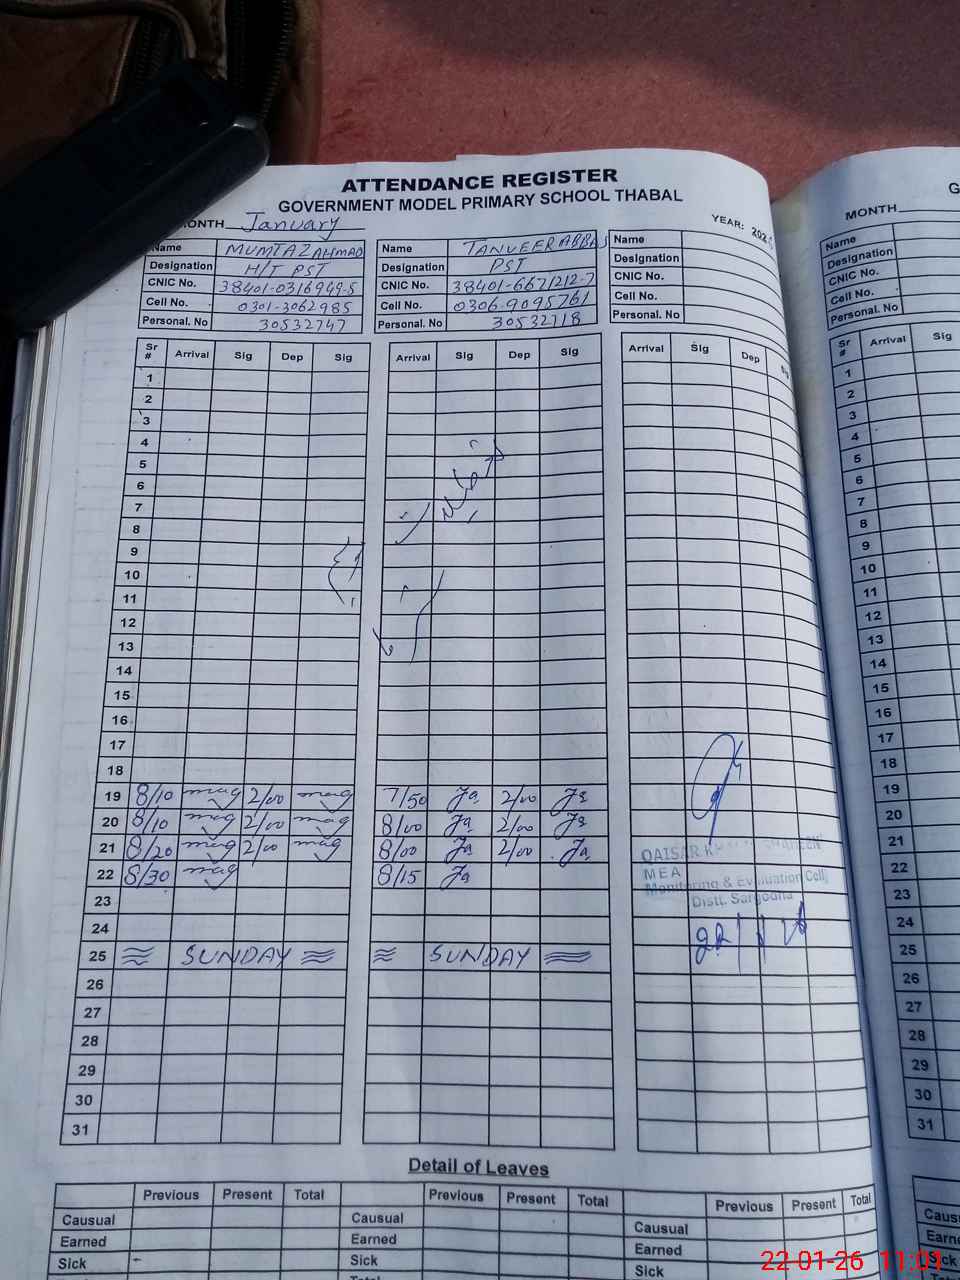 ATTENDANCE REGISTER
GOVERNMENT MODEL PRIMARY SCHOOL THABAL
MONTH January YEAR: 202
Name MUMTAZ AHMAD
Designation H/T PST
CNIC No. 38401-0316949-5
Cell No. 0301-3062985
Personal. No 30532747
Name TANVEER ABBAS
Designation PST
CNIC No. 38401-6671212-7
Cell No. 0306-9095761
Personal. No 30532718
Name
Designation
CNIC No.
Cell No.
Personal. No
Sr # Arrival Sig Dep Sig Arrival Sig Dep Sig Arrival Sig Dep Sig
1
2
3
4
5
6
7
8
9
10
11
12
13
14
15
16
17
18
19 8/10 mag 2/00 mag 7/50 2/00
20 8/10 mag 2/00 mag 8/00 2/00
21 8/20 mag 2/00 mag 8/00 2/00
22 8/30 mag 8/15
23
24
25 SUNDAY SUNDAY
26
27
28
29
30
31
QAISAR
MEA
Monitoring & Evaluation Cell,
Distt. Sargodha
Detail of Leaves
Previous Present Total Previous Present Total Previous Present Total
Causual Causual Causual
Earned Earned Earned
Sick Sick Sick
Total
MONTH
Name
Designation
CNIC No.
Cell No.
Personal. No
Sr # Arrival Sig
1
2
3
4
5
6
7
8
9
10
11
12
13
14
15
16
17
18
19
20
21
22
23
24
25
26
27
28
29
30
31
22-01-26 11:01